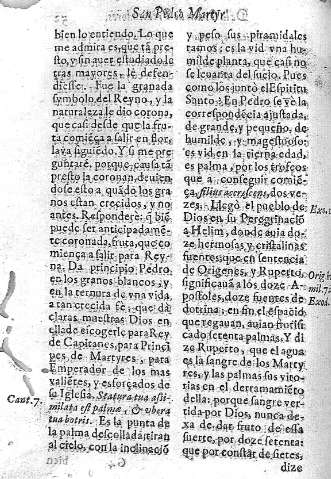 San Pedro Martyr
bien lo entiendo. Lo que
me admira es, que tã pre-
sto, y sin auer estudiado le-
tras mayores, le defen-
diesse. Fue la granada
symbolo del Reyno, y la
naturaleza le dio corona,
que casi desde que la fru-
ta comiẽça a salir en flor,
la va siguiẽdo. Y si me pre-
guntare, porque causa tã
presto la coronan, deuiẽn
dose esto a quãdo los gra
nos estan crecidos, y no
antes. Responderè: q̃ biẽ
puede ser anticipadamẽ-
te coronada, fruta, que co-
miença a salir para Rey-
na. Da principio Pedro,
en los granos blancos, y
en la ternura de vna vida,
a tan crecida fè, que dà
claras muestras Dios en
ella de escogerle para Rey
de Capitanes, para Princi
pes de Martyres, para
Emperador de los mas
valiẽtes, y esforçados de
su Iglesia. Statura tua assi-
Cant. 7.
milata est palmæ, & vbera
tua botris. Es la punta de
la palma descollada tirar
al cielo, con la inclinaciõ
y peso sus piramidales
ramos; es la vid vna hu-
milde planta, que casi no
se leuanta del suelo. Pues
como los juntò el Espiritu
Santo? En Pedro se vè la
correspondẽcia ajustada,
de grande, y pequeño, de
humilde, y magestuoso:
es vid en la tierna edad,
es palma, por los trofeos
que a conseguir comiẽ-
ça, filius accrescens, dos ve-
zes. Llegò el pueblo de
Dios en su Peregrinaciõ
a Helim, donde auia do-
ze hermosas, y cristalinas
fuentes, que en sentencia
de Origenes, y Ruperto,
significauã a los doze A-
postoles, doze fuentes de
dotrina, en fin el espacio
que regauan, auian florisi
cado setenta palmas. Y di
ze Ruperto, que el agua
es la sangre de los Marty
res, y las palmas sus vito-
rias en el derramamiẽto
della: porque sangre ver-
tida por Dios, nunca de-
xa de dar fruto de essa
suerte, por doze setenta:
que por constar de sietes,
dize